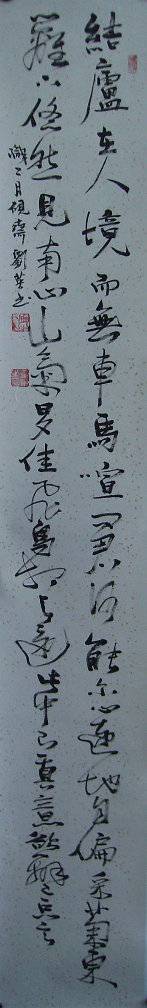 結廬在人境而無車馬喧問君何能尔心遠地自偏采菊東
籬下悠然見南山山氣日夕佳飛鳥相與還此中有真意欲辨已忘言
二月硯齋劉